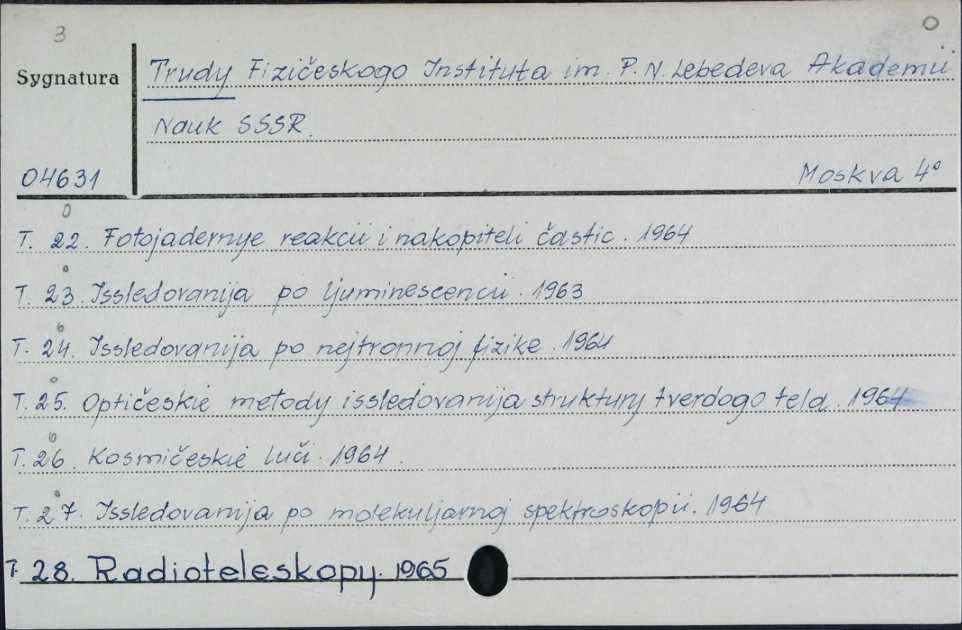 3
O
Sygnatura
Trudy Fizičeskogo Instituta im. P. N. Lebedeva Akademii
Nauk SSSR.
04631
Moskva 4°
T. 22. Fotojadernye reakcii i nakopiteli častic. 1964
T. 23. Issledovanija po ljuminescencii. 1963
T. 24. Issledovanija po nejtronnoj fizike. 1964
T. 25. Optičeskie metody issledovanija struktury tverdogo tela. 1964
T. 26. Kosmičeskie luči. 1964.
T. 27. Issledovanija po molekuljarnoj spektroskopii. 1964
T. 28. Radioteleskopy. 1965